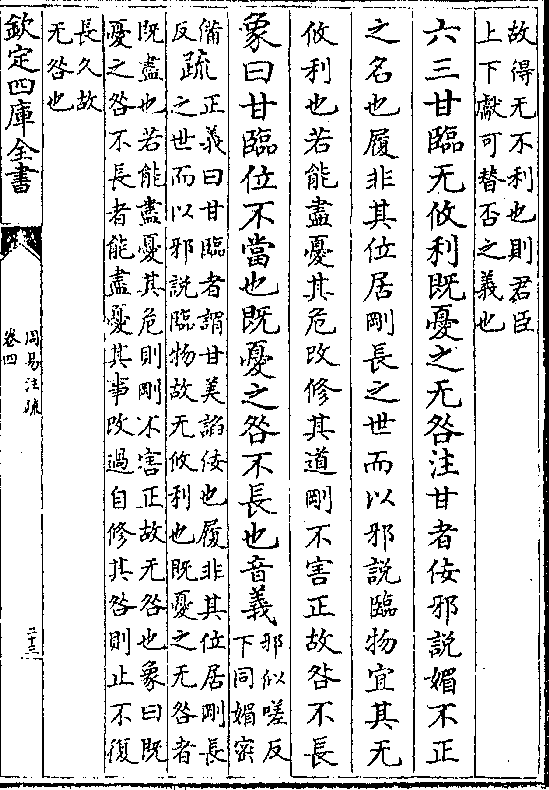 故得无不利也則君臣
上下獻可替否之義也
六三甘臨无攸利既憂之无咎注甘者佞邪說媚不正
之名也履非其位居剛長之世而以邪說臨物宜其无
攸利也若能盡憂其危改修其道剛不害正故咎不長
象曰甘臨位不當也既憂之咎不長也音義
邪似嗟反
下同媚密
備
疏
正義曰甘臨者謂甘美諂佞也履非其位居剛長
反
之世而以邪說臨物故无攸利也既憂之无咎者
既盡也若能盡憂其危則剛不害正故无咎也象曰既
憂之咎不長者能盡憂其事改過自修其咎則止不復
長久故
无咎也
欽定四庫全書
周易注疏
卷四
二十三